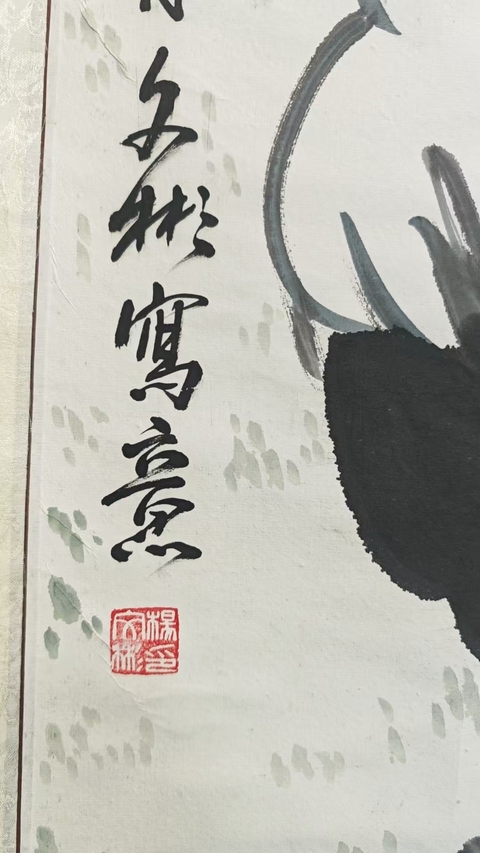 文彬寫意
楊印
文彬